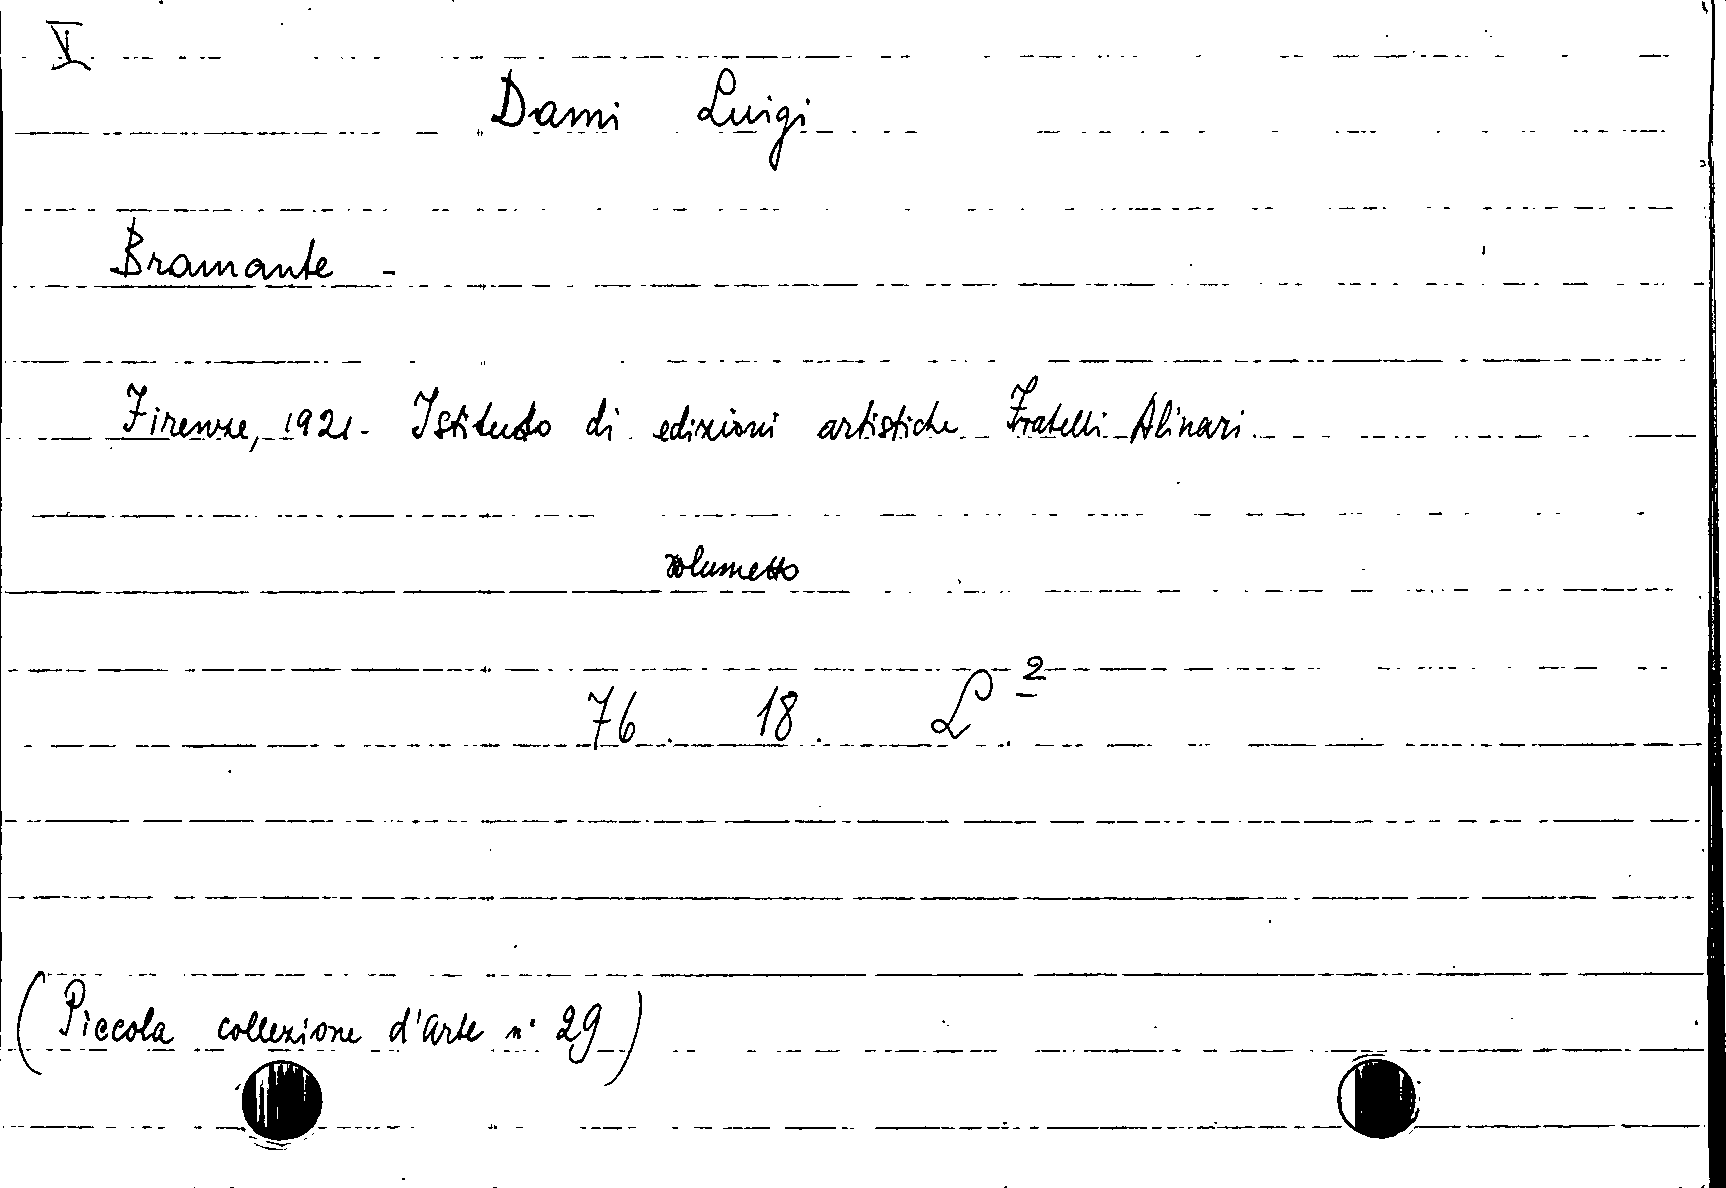 V
Dami Luigi
Bramante -
Firenze, 1921 - Istituto di edizioni artistiche Fratelli Alinari
volumetto
76. 18. L 2
(Piccola collezione d'arte n° 29)